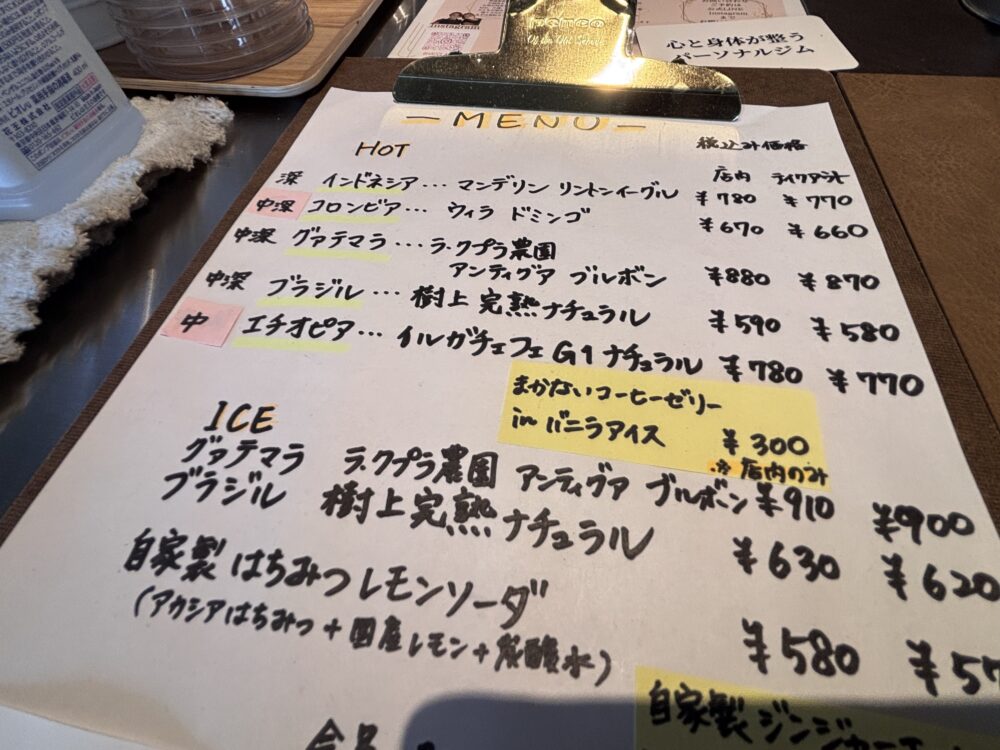 penco
Instagram
心と身体が整う
パーソナルジム
-MENU-
HOT 税込み価格
店内 テイクアウト
深 インドネシア… マンデリン リントンイーグル ¥780 ¥770
中深 コロンビア… ウィラ ドミンゴ ¥670 ¥660
中深 グァテマラ… ラ・クプラ農園
アンティグア ブルボン ¥880 ¥870
中深 ブラジル… 樹上完熟ナチュラル ¥590 ¥580
中 エチオピア… イルガチェフェ G1 ナチュラル ¥780 ¥770
まかないコーヒーゼリー
in バニラアイス ¥300
※店内のみ
ICE
グァテマラ ラ・クプラ農園 アンティグァ ブルボン ¥910 ¥900
ブラジル 樹上完熟ナチュラル ¥630 ¥620
自家製はちみつレモンソーダ ¥580 ¥57
(アカシアはちみつ+国産レモン+炭酸水)
自家製ジンジャーエ